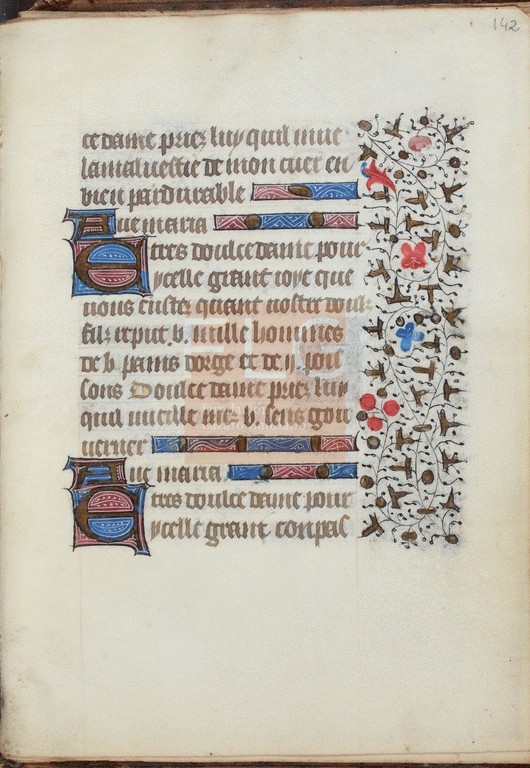 142
ce dame priez luy quil mue
la malueistie de mon cuer en
bien pardurable
Aue maria
E tres doulce dame pour
ycelle grant ioye que
nous eustes quant nostre doulz
filz reput .v. mille hommes
de .v. pains dorge et de .ij. pois
sons Doulce dame priez luy
quil vueille mes .v. sens gou
uerner
Aue maria
E tres doulce dame pour
ycelle grant conpas